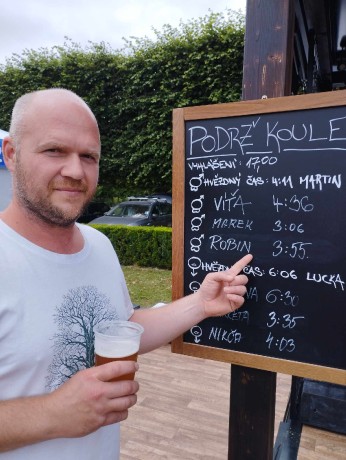 PODRŽ KOULE
VYHLÁŠENÍ: 17,00
♂ HVĚZDNÝ ČAS: 4:11 MARTIN
♂ VÍŤA 4:36
♂ MAREK 3:06
♂ ROBIN 3:55.
♀ HVĚZ ČAS: 6:06 LUCKA
NA 6:30
3:35
♀ NIKČA 4:03